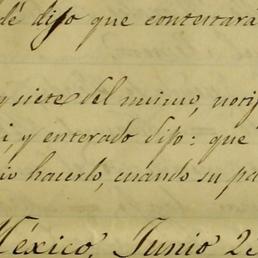 dé dijo que contestará
y siete del mismo, notif
i, y enterado dijo: que
io hacerlo, cuando su pa
México, Junio 23